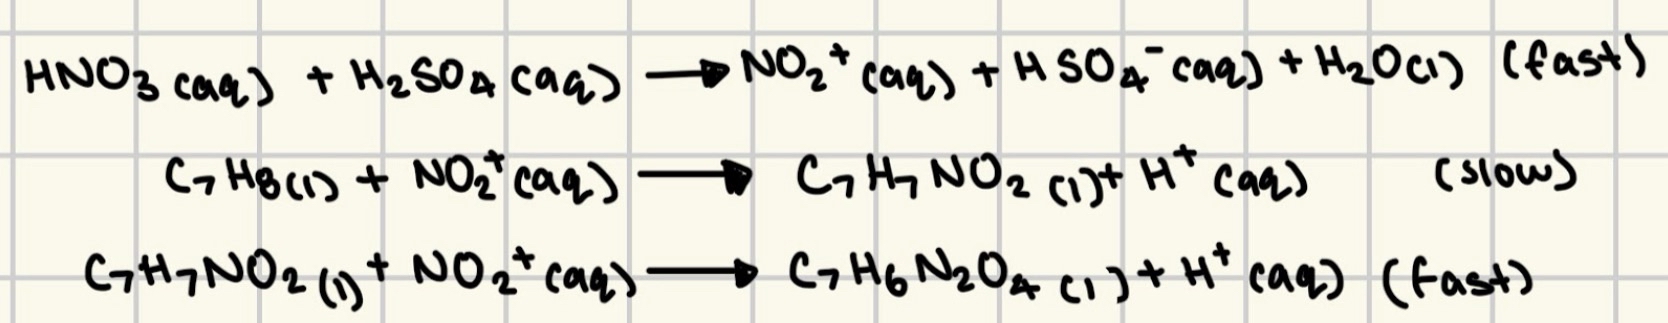 HNO₃ (aq) + H₂SO₄ (aq) → NO₂⁺ (aq) + HSO₄⁻ (aq) + H₂O(l) (fast)
C₇H₈(l) + NO₂⁺(aq) → C₇H₇NO₂ (l) + H⁺ (aq) (slow)
C₇H₇NO₂ (l) + NO₂⁺ (aq) → C₇H₆N₂O₄ (l) + H⁺ (aq) (fast)